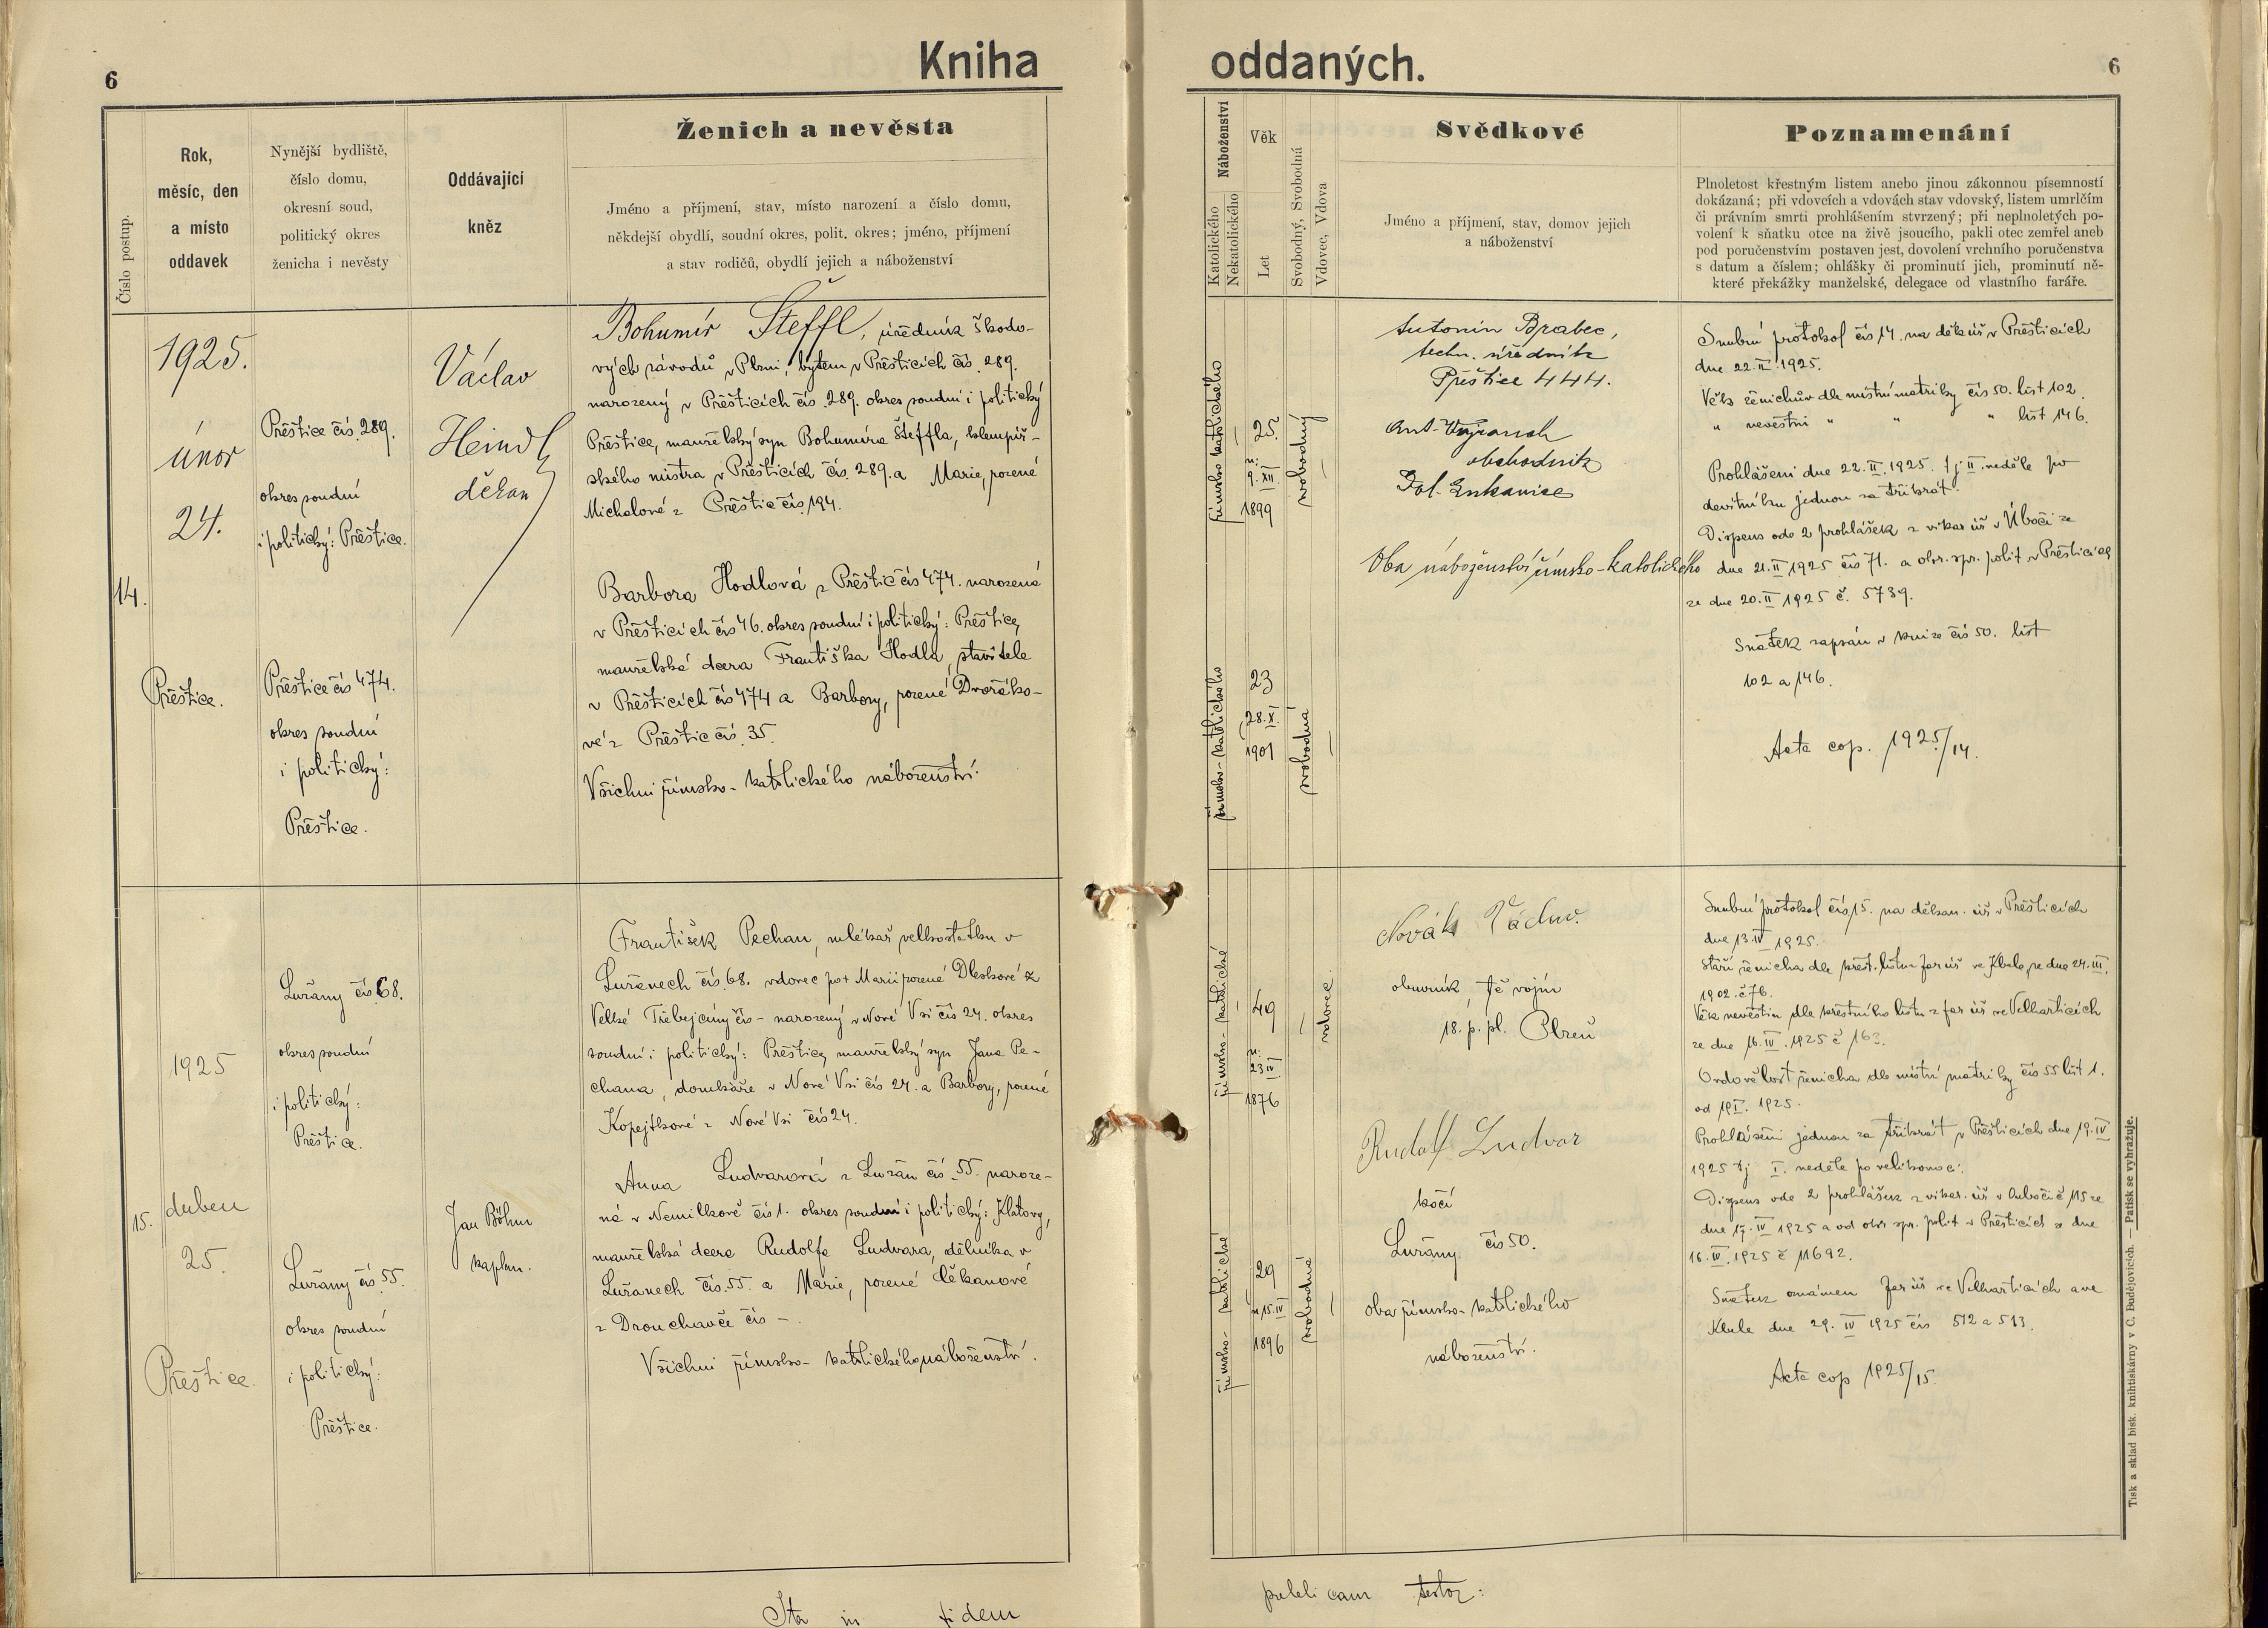 6
Kniha oddaných.
6
Číslo postup.
Rok,
měsíc, den
a místo
oddavek
Nynější bydliště,
číslo domu,
okresní soud,
politický okres
ženicha i nevěsty
Oddávající
kněz
Ženich a nevěsta
Jméno a příjmení, stav, místo narození a číslo domu,
někdejší obydlí, soudní okres, polit. okres; jméno, příjmení
a stav rodičů, obydlí jejich a náboženství
Náboženství
Katolického
Nekatolického
Věk
Let
Svobodný, Svobodná
Vdovec, Vdova
Svědkové
Jméno a příjmení, stav, domov jejich
a náboženství
Poznamenání
Plnoletost křestným listem anebo jinou zákonnou písemností
dokázaná; při vdovcích a vdovách stav vdovský, listem umrlčím
či právním smrti prohlášením stvrzený; při neplnoletých po-
volení k sňatku otce na živě jsoucího, pakli otec zemřel aneb
pod poručenstvím postaven jest, dovolení vrchního poručenstva
s datum a číslem; ohlášky či prominutí jich, prominutí ně-
které překážky manželské, delegace od vlastního faráře.
14.
1925.
únor
24.
Přeštice.
Přeštice čís. 289.
okres soudní
i politický: Přeštice.
Přeštice čís 474.
okres soudní
i politický:
Přeštice.
Václav
Heindl
děkan
Bohumír Šteffl, úředník Škodo-
vých závodů v Plzni, bytem v Přešticích čís. 289.
narozený v Přešticích čís. 289. okres soudní i politický
Přeštice, manželský syn Bohumíra Šteffla, klempíř-
ského mistra v Přešticích čís. 289. a Marie, rozené
Michalové z Přeštic čís. 194.
Barbora Hodlová z Přeštic čís 474. narozená
v Přešticích čís 46. okres soudní i politický: Přeštice,
manželská dcera Františka Hodla, stavitele
v Přešticích čís 474 a Barbory, rozené Dvořáko-
vé z Přeštic čís. 35.
Všichni římsko-katolického náboženství.
římsko katolického
25.
n:
9. XII.
1899
svobodný
římsko-katolického
23
28. X.
1901
svobodná
Antonín Brabec,
techn. úředník
Přeštice 444.
Ant.
obchodník
Dol. Lukavice
Oba náboženství římsko-katolického
Snubní protokol čís 14. na děk úř v Přešticích
dne 22. II. 1925.
Věk ženichův dle místní matriky čís 50. list 102.
" nevěstin " " list 146.
Prohlášeni dne 22. II. 1925. tj II. neděle po
devítníku jednou za třikrát.
Dispens ode 2 prohlášek z vikar úř v Úboči ze
dne 21. II 1925 čís 71. a okr. spr. polit v Přešticích
ze dne 20. II 1925 č. 5739.
Sňatek zapsán v knize čís 50. list
102 a 146.
Acta cop. 1925/14.
15.
1925
duben
25.
Přeštice.
Lužany čís. 68.
okres soudní
i politický:
Přeštice.
Lužany čís. 55.
okres soudní
i politický:
Přeštice.
Jan Böhm
kaplan.
František Pechan, mlékař velkostatku v
Lužanech čís. 68. vdovec po + Marii rozené Dleskové z
Velké Třebejčiny čís - narozený v Nové Vsi čís 24. okres
soudní i politický: Přeštice, manželský syn Jana Pe-
chana, domkáře v Nové Vsi čís 24. a Barbory, rozené
Kopejtkové z Nové Vsi čís 24.
Anna Ludvarová z Lužan čís. 55. naroze-
ná v Nemilkově čís 1. okres soudní i politický: Klatovy,
manželská dcera Rudolfa Ludvara, dělníka v
Lužanech čís. 55. a Marie, rozené Čekanové
z Drouchavče čís -.
Všichni římsko-katolického náboženství.
římsko-katolické
49
n:
23 IV.
1876
vdovec
římsko-katolické
29
n 15. IV
1896
svobodná
Novák Václav.
obuvník, tč vojín
18. p. pl. Plzeň
Rudolf Ludvar
kočí
Lužany čís 50.
oba římsko-katolického
náboženství.
Snubní protokol čís 15. na děkan. úř v Přešticích
dne 13. IV 1925.
Stáří ženicha dle křest. listu far úř ve Kbele ze dne 24. III.
1902. č 76.
Věk nevěstin dle křestního listu z far úř ve Velharticích
ze dne 16. IV. 1925 č 163.
Ovdovělost ženicha dle místní matriky čís 55 list 1.
od 19 I. 1925.
Prohlášeni jednou za třikrát v Přešticích dne 19. IV
1925 tj I. neděle po velikonoci.
Dispens ode 2 prohlášek z vikar. úř v Ouboči č 115 ze
dne 17. IV 1925 a od okr spr. polit v Přešticích ze dne
16. IV. 1925 č 11692.
Sňatek oznámen far úř ve Velharticích a ve
Kbele dne 29. IV 1925 čís 512 a 513.
Acta cop 1925/15.
Ita in fidem
publicam testor:
Tisk a sklad bisk. knihtiskárny v Č. Budějovicích. — Patisk se vyhražuje.